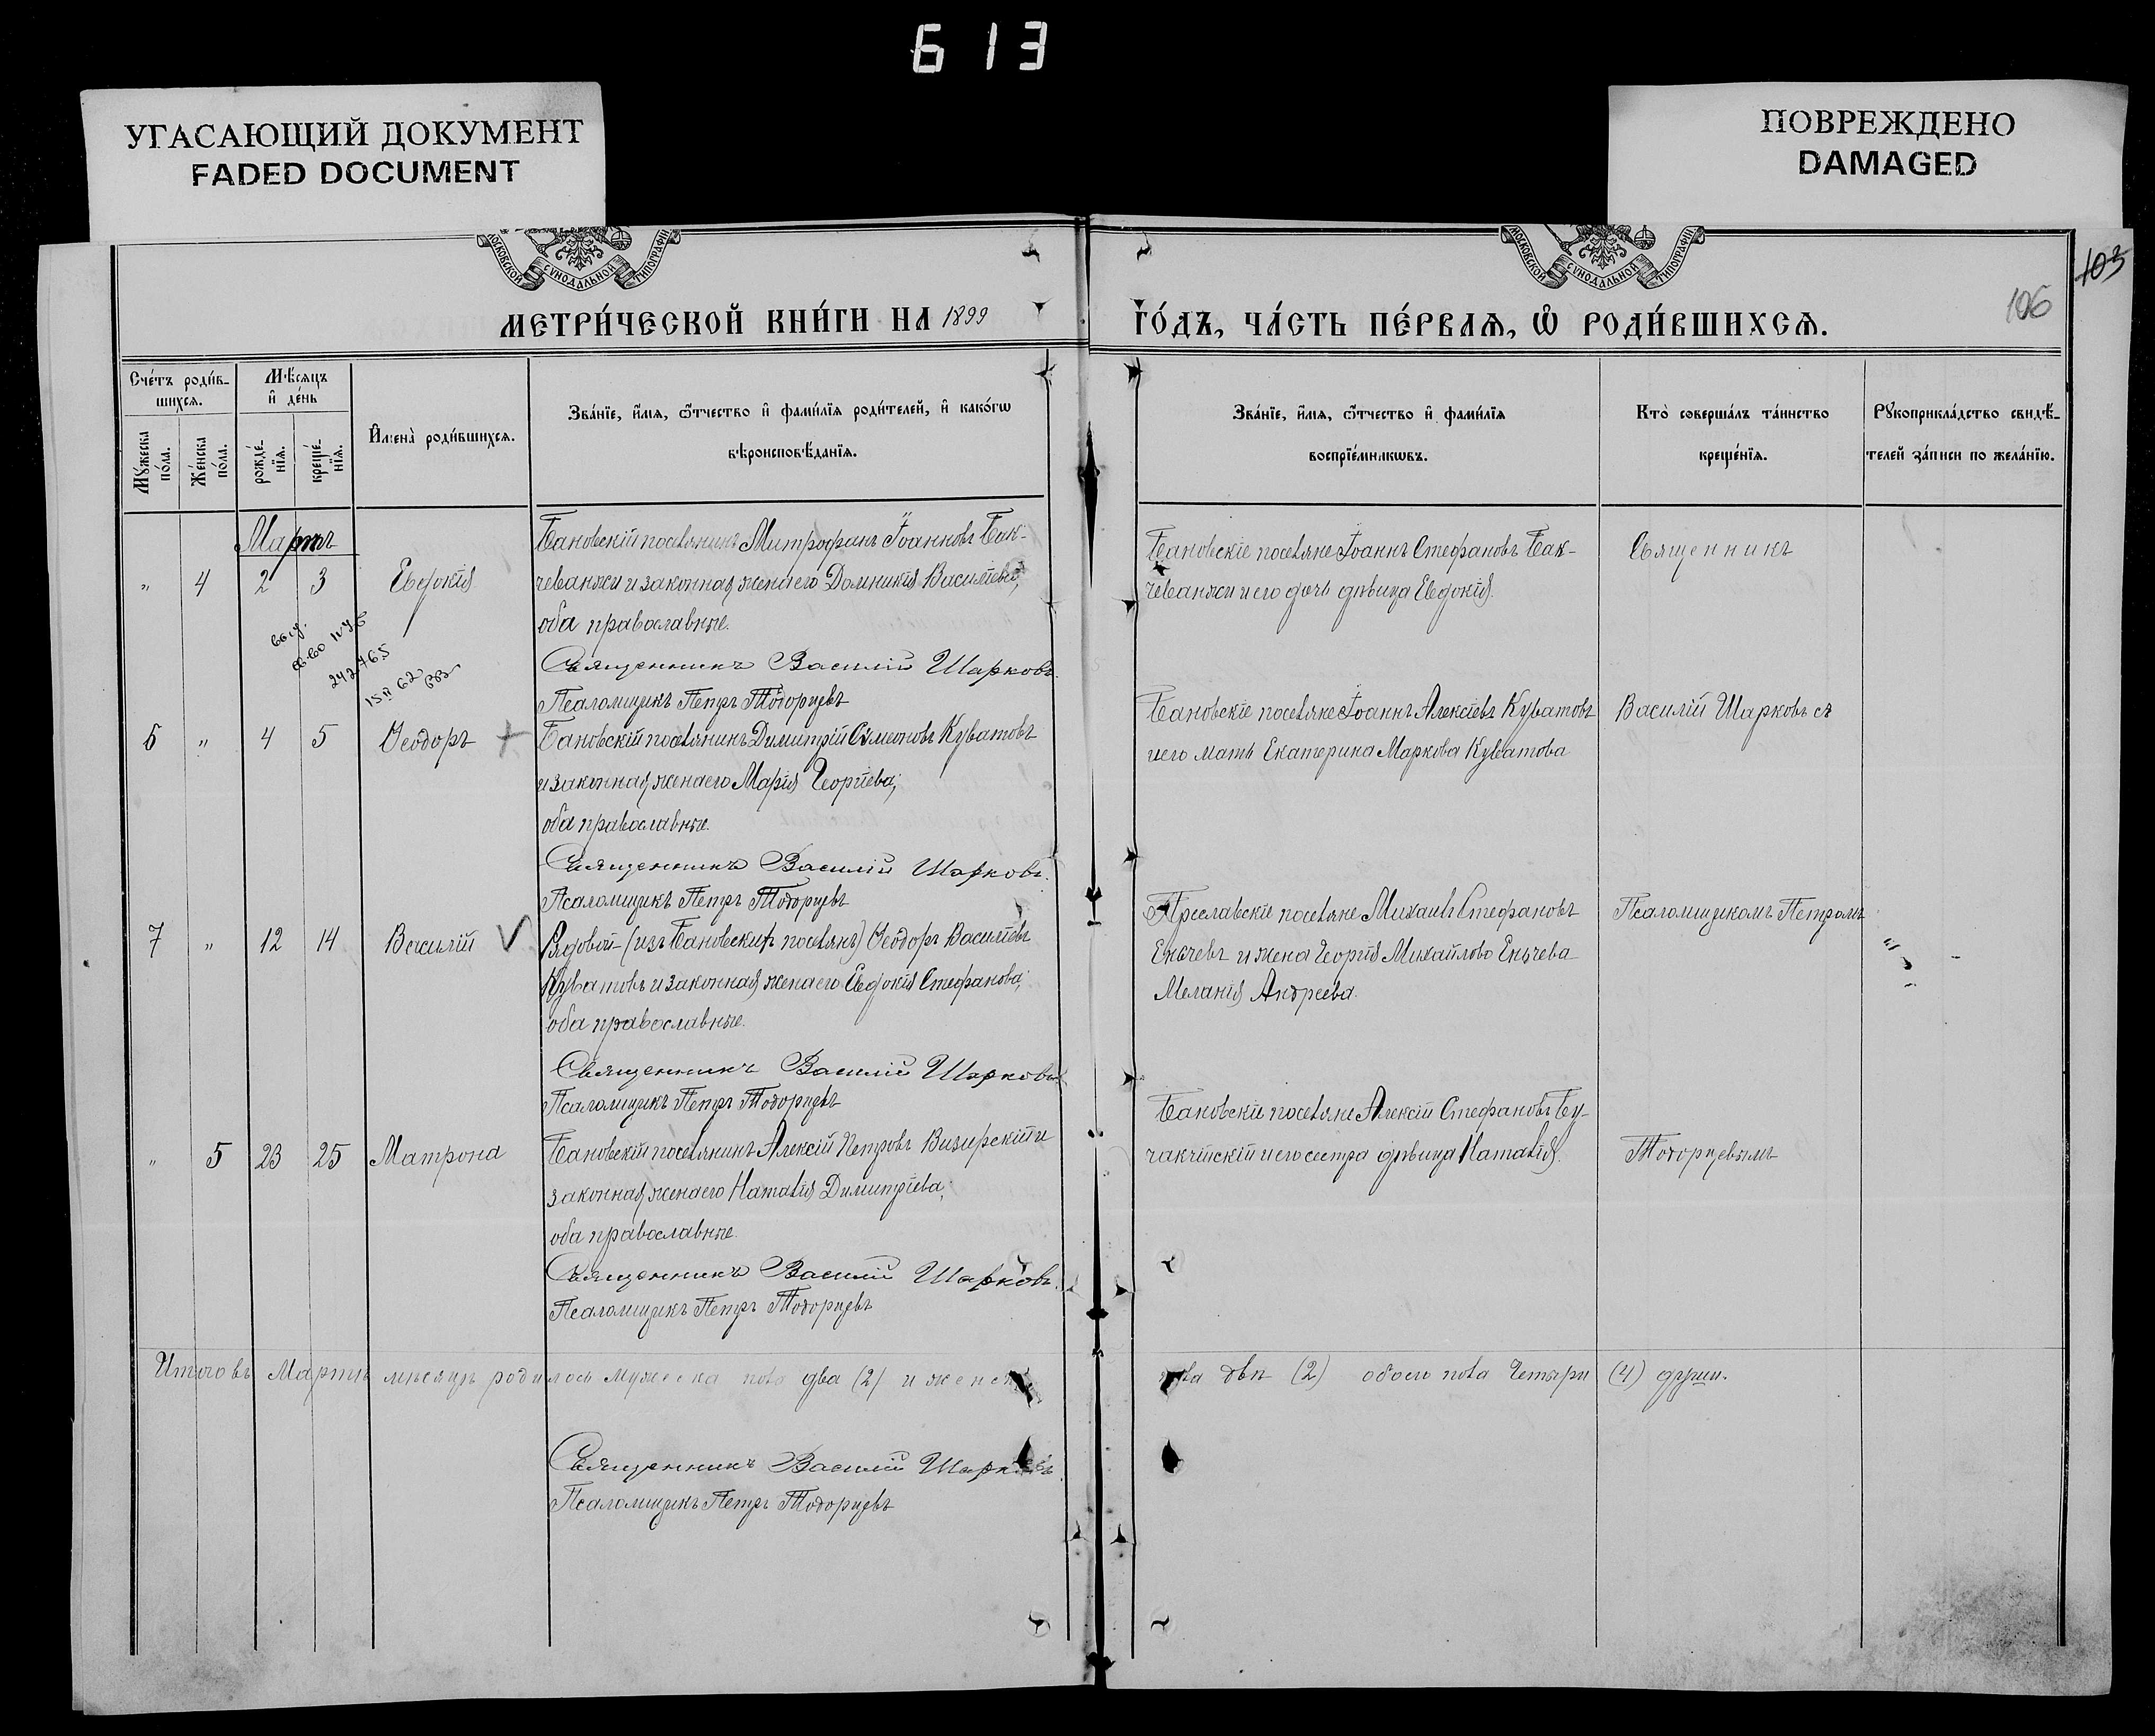 613
УГАСАЮЩИЙ ДОКУМЕНТ
FADED DOCUMENT
ПОВРЕЖДЕНО
DAMAGED
МОСКОВСКОЙ СУНОДАЛЬНОЙ ТИПОГРАФИИ
МОСКОВСКОЙ СУНОДАЛЬНОЙ ТИПОГРАФИИ
103
106
МЕТРИ́ЧЕСКОЙ КНИ́ГИ НА 1899
ГО́ДЪ, ЧА́СТЬ ПЕ́РВАѦ, Ѡ҆ РОДИ́ВШИХСѦ.
Сче́тъ роди́в-
шихсѧ.
Мꙋ́жеска
по́ла.
Же́нска
по́ла.
Мѣ́сѧцъ
и҆ де́нь
рожде́-
нїѧ.
креще́-
нїѧ.
И҆мена̀ роди́вшихсѧ.
Зва́нїе, и҆́мѧ, ѻ҆́тчество и҆ фами́лїѧ роди́телей, и҆ како́гѡ
вѣроисповѣ́данїѧ.
Зва́нїе, и҆́мѧ, ѻ҆́тчество и҆ фами́лїѧ
воспрїе́мникѡвъ.
Кто̀ соверша́лъ та́инство
креще́нїѧ.
Рꙋкоприкла́дство свидѣ́-
телей за́писи по жела́нїю.
Мартъ
„ 4 2 3 Евдокія
Бановскій поселянинъ Митрофанъ Іоанновъ Бак-
чеванжи и законная жена его Домникія Василіева;
оба православные.
Священникъ Василій Шарковъ.
Псаломщикъ Петръ Тодорцевъ
Бановскіе поселяне Іоаннъ Стефановъ Бак-
чеванжи и его дочь дѣвица Евдокія.
Священникъ
выд.
св-во
15 II 62
6 „ 4 5 Ѳеодоръ
Бановскій поселянинъ Димитрій Симеоновъ Куватовъ
и законная жена его Марія Георгіева;
оба православные.
Священникъ Василій Шарковъ.
Псаломщикъ Петръ Тодорцевъ
Бановскіе поселяне Іоаннъ Алексіевъ Куватовъ
и его мать Екатерина Маркова Куватова
Василій Шарковъ съ
7 „ 12 14 Василій V
Рядовой (изъ Бановскихъ поселянъ) Ѳеодоръ Василіевъ
Куватовъ и законная жена его Евдокія Стефанова;
оба православные.
Священникъ Василій Шарковъ
Псаломщикъ Петръ Тодорцевъ
Преславскіе поселяне Михаилъ Стефановъ
Еньчевъ и жена Георгія Михайлова Еньчева
Меланія Андреева.
Псаломщикомъ Петромъ
„ 5 23 25 Матрона
Бановскій поселянинъ Алексій Петровъ Визирскій и
законная жена его Наталія Димитріева;
оба православные.
Священникъ Василій Шарковъ.
Псаломщикъ Петръ Тодорцевъ
Бановскіе поселяне Алексій Стефановъ Бу-
чакчійскій и его сестра дѣвица Наталія.
Тодорцевымъ
Итого въ Мартѣ мѣсяцѣ родилось мужеска пола два (2) и женска
пола двѣ (2) обоего пола четыри (4) души.
Священникъ Василій Шарковъ.
Псаломщикъ Петръ Тодорцевъ